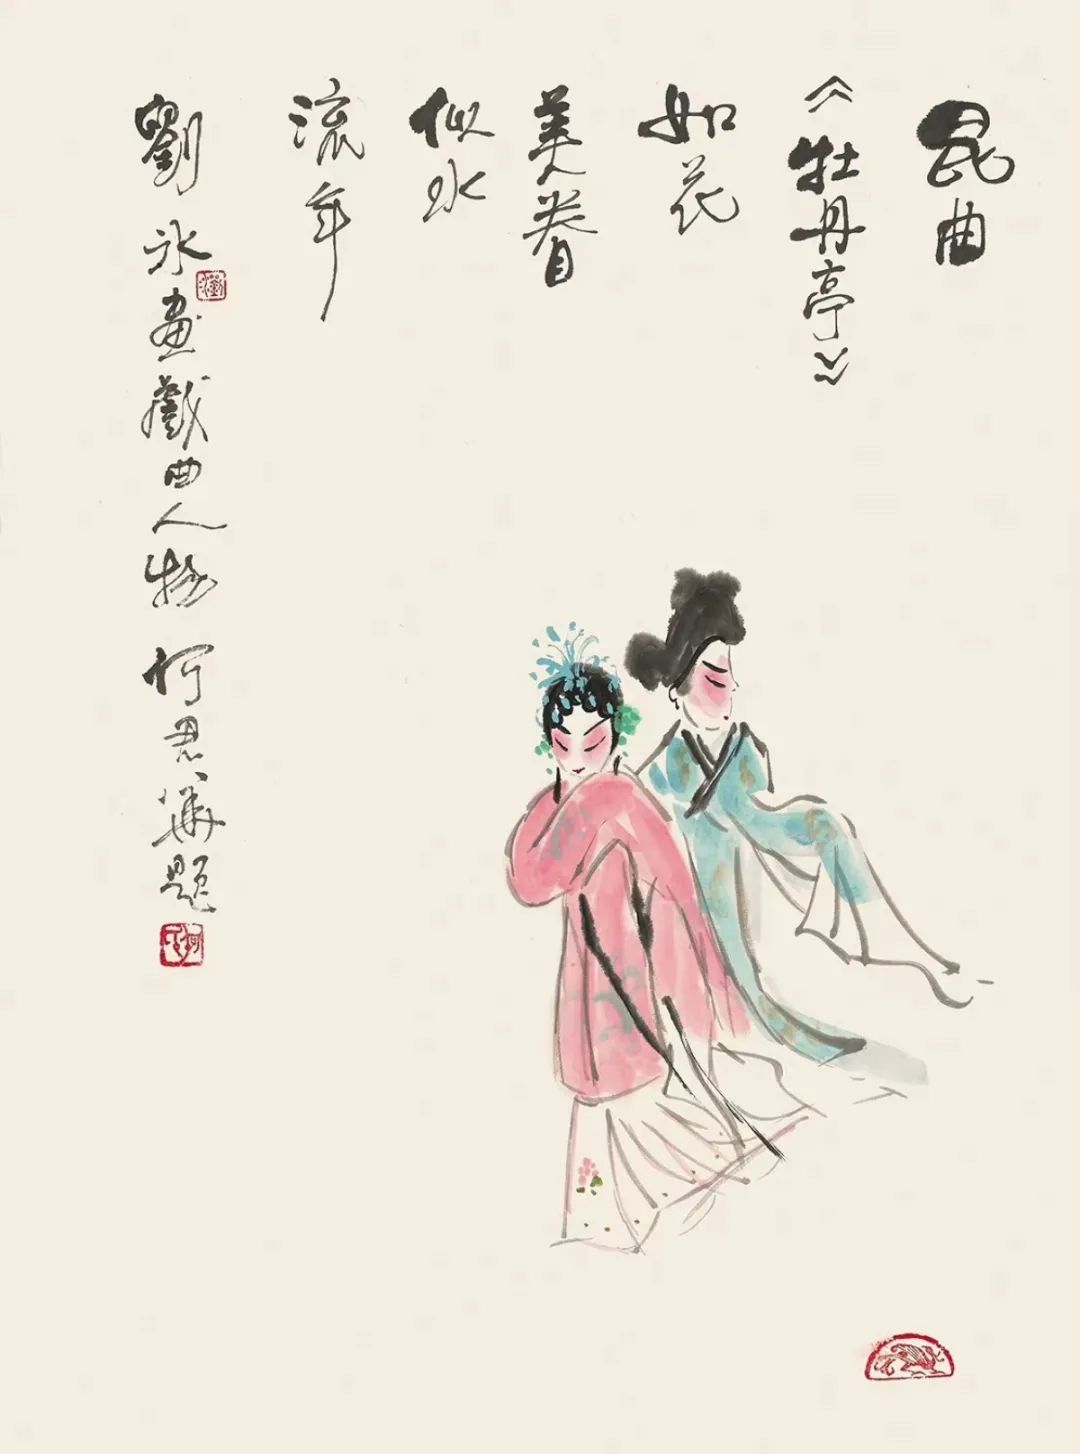 昆曲
《牡丹亭》
如花
美眷
似水
流年
劉冰畫戲曲人物 何君華題